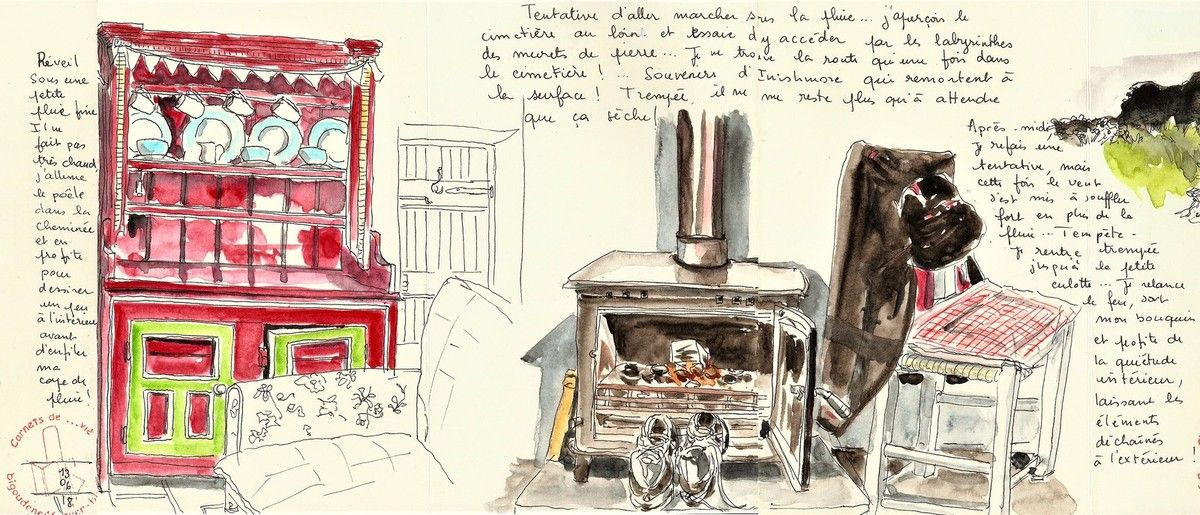 Réveil
sous une
petite
pluie fine
Il ne
fait pas
très chaud
j'allume
le poêle
dans la
cheminée
et en
profite
pour
dessiner
un peu
à l'intérieur
avant
d'enfiler
ma
cape de
pluie !
Carnets de ... vie
13
06
18
Tentative d'aller marcher sous la pluie... j'aperçois le
cimetière au loin et essaie d'y accéder par les labyrinthes
des murets de pierre... Je ne trouve la route qu'une fois dans
le cimetière ! ... Souvenirs d'Inishmore qui remontent à
la surface ! Trempée, il ne me reste plus qu'à attendre
que ça sèche
Après-midi
je refais une
tentative, mais
cette fois le vent
s'est mis à souffler
fort en plus de la
pluie... Tempête -
je rentre trempée
jusqu'à la petite
culotte... Je relance
le feu, sort
mon bouquin
et profite de
la quiétude
intérieur,
laissant les
éléments
déchaînés
à l'extérieur !